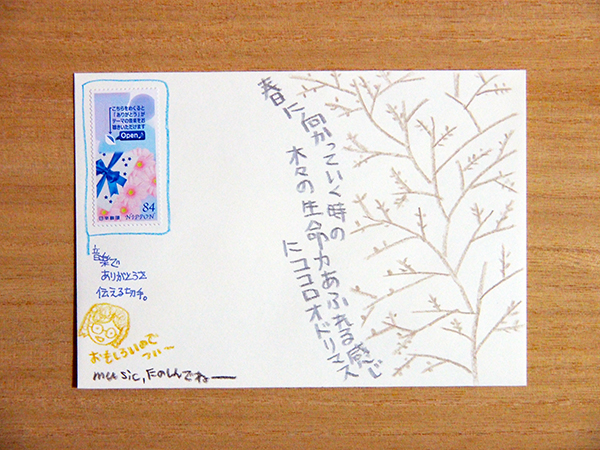 こちらをめくると
「ありがとう」が
テーマの音楽をお
聴きいただけます
Open♪
84
日本郵便 NIPPON
音楽で
ありがとうを
伝える切手。
おもしろいので
つい〜
music,たのしんでねー
春に向かっていく時の
木々の生命力あふれる感じ
にココロオドリマス